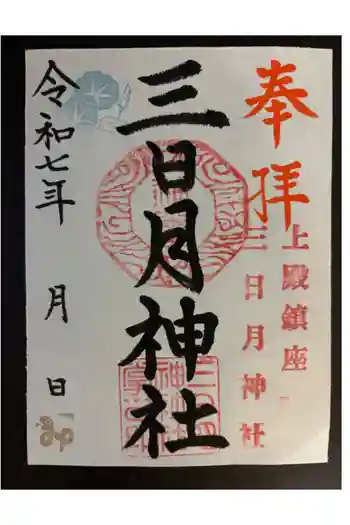 奉拝
上殿鎮座
三日月神社
三日月神社
令和七年 月 日